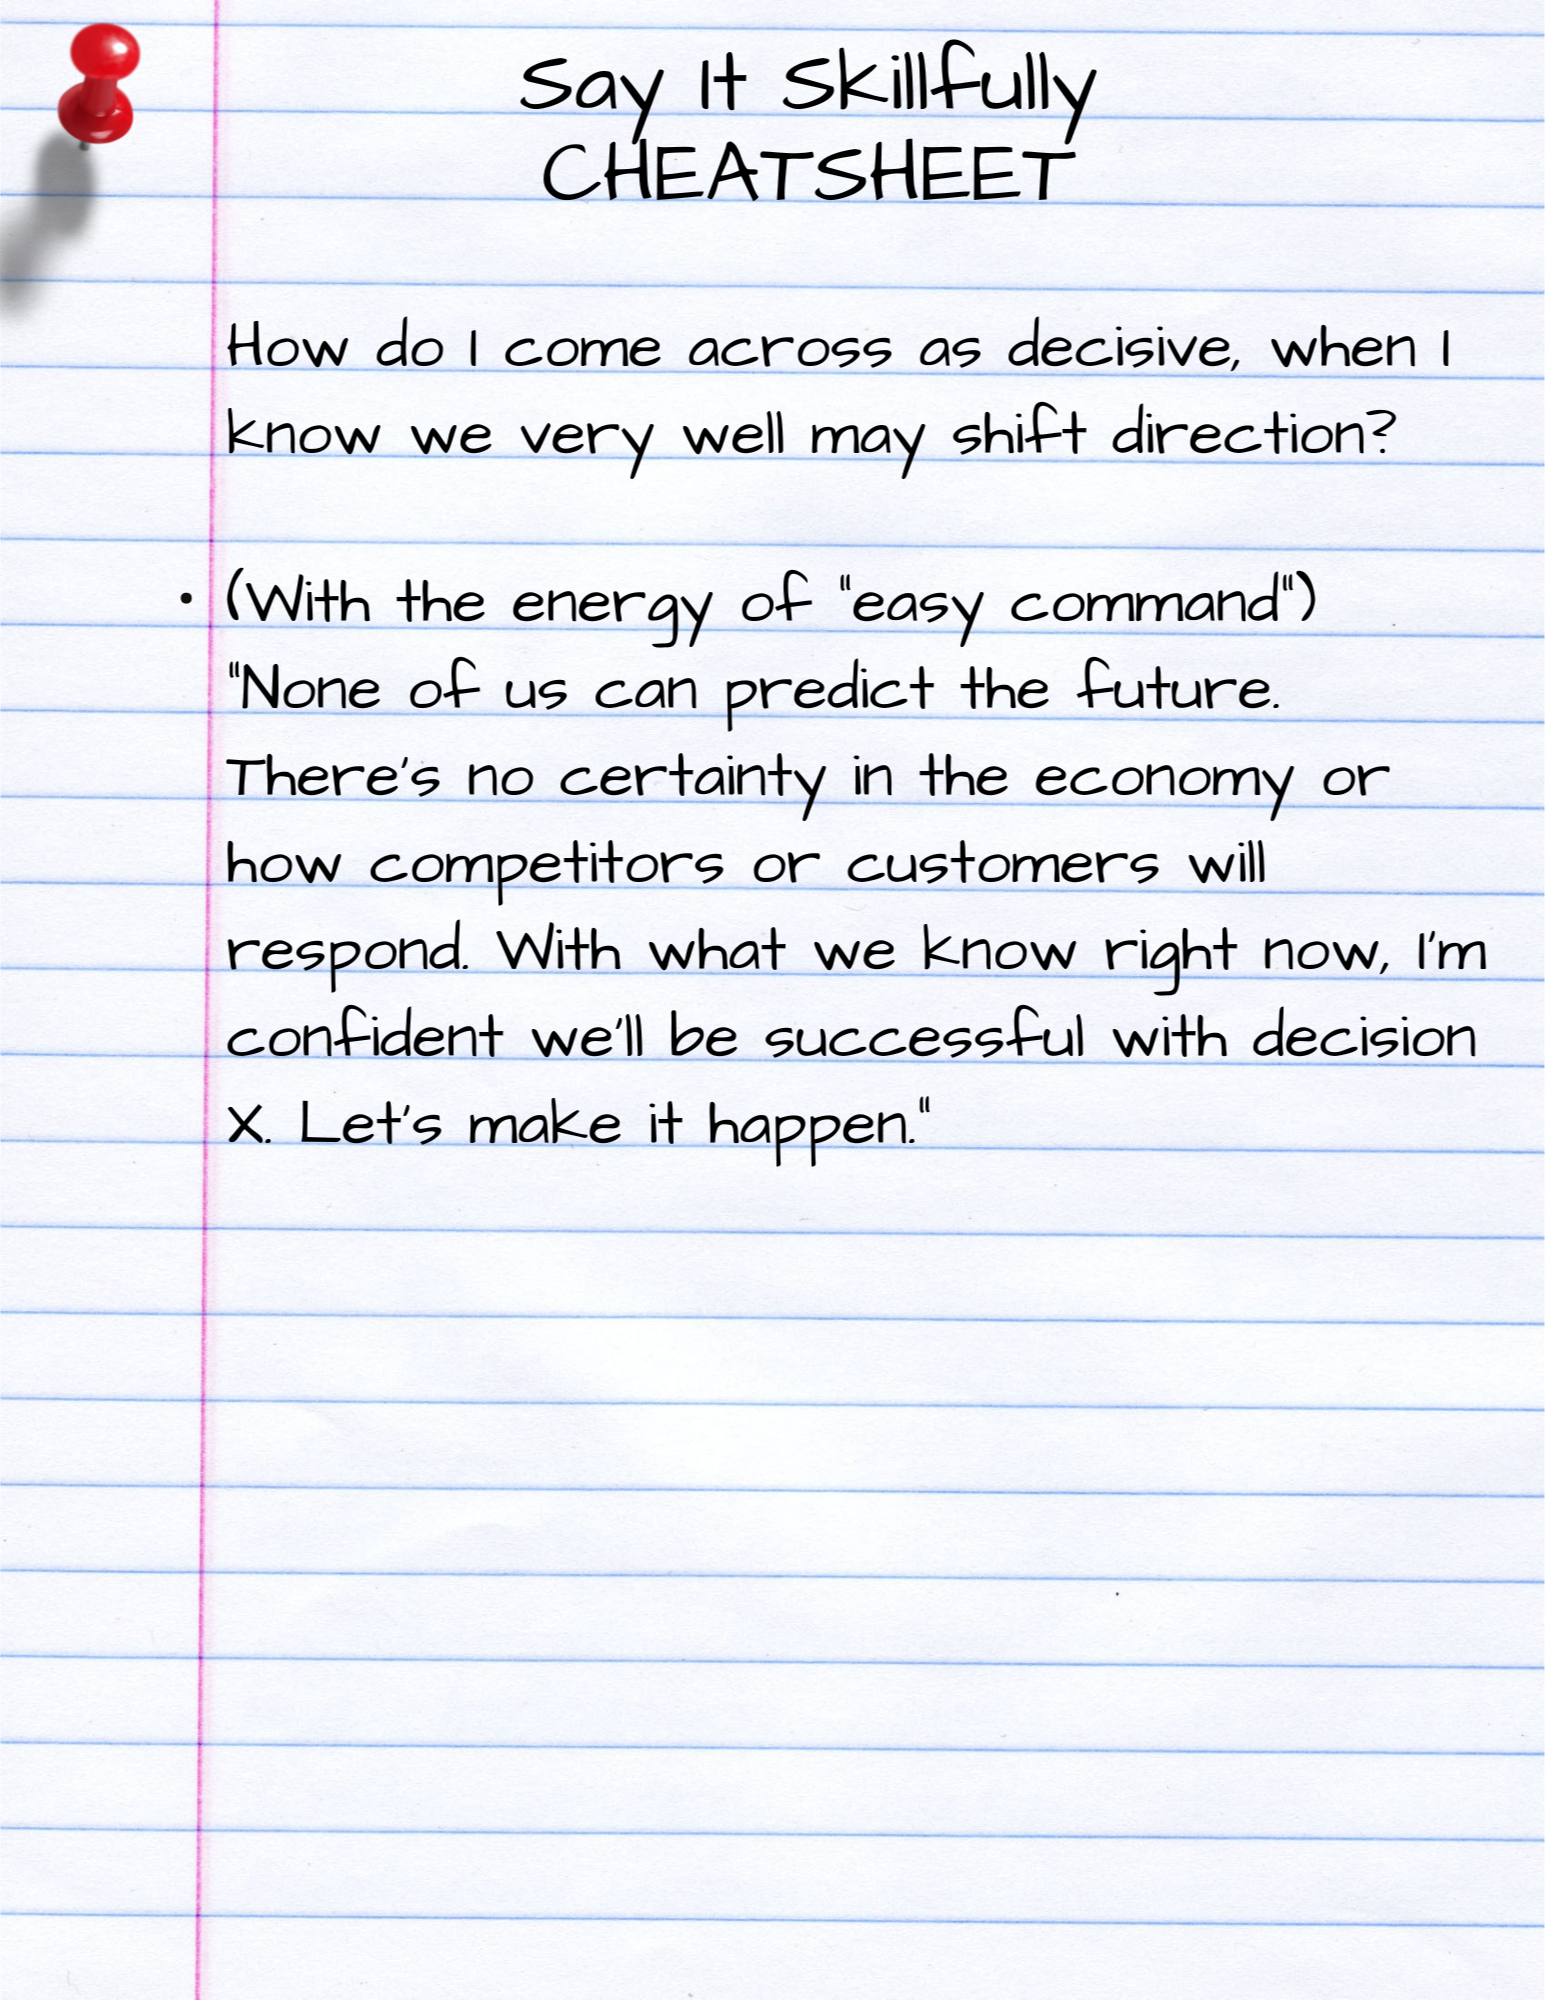 Say It Skillfully
CHEATSHEET
How do I come across as decisive, when I
know we very well may shift direction?
• (With the energy of "easy command")
"None of us can predict the future.
There's no certainty in the economy or
how competitors or customers will
respond. With what we know right now, I'm
confident we'll be successful with decision
X. Let's make it happen."